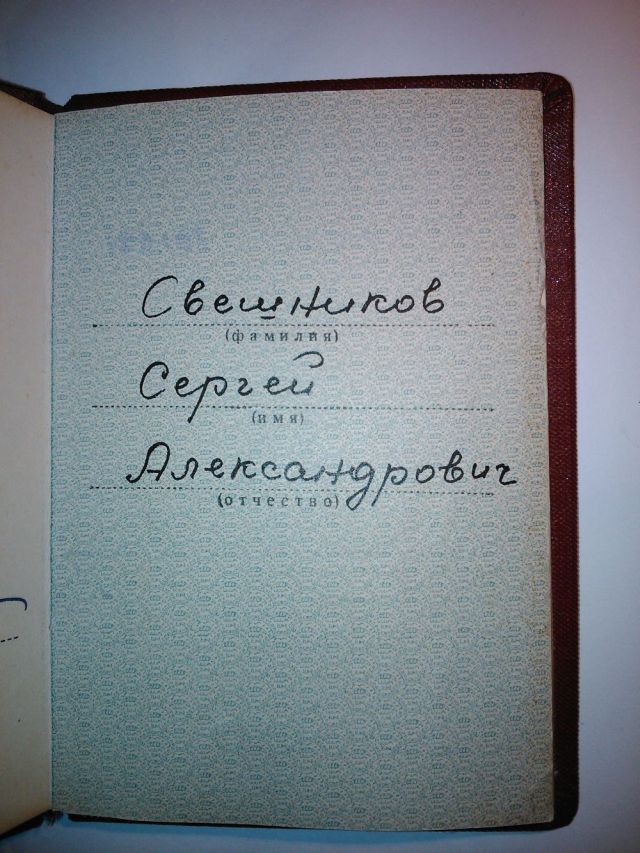 Свешников
(фамилия)
Сергей
(имя)
Александрович
(отчество)